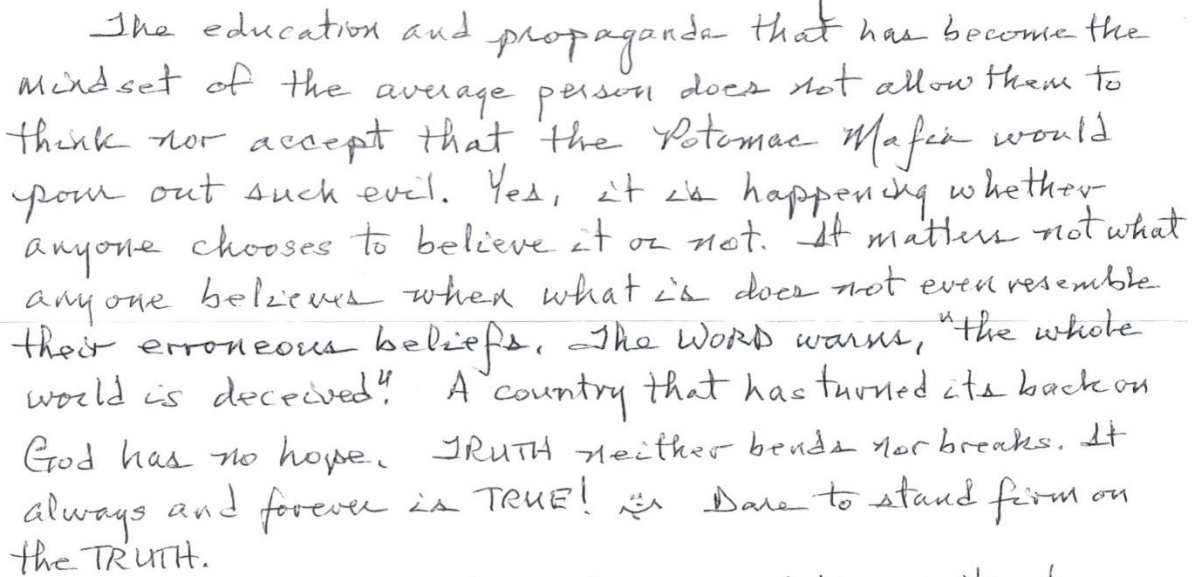 The education and propaganda that has become the
mindset of the average person does not allow them to
think nor accept that the Potomac Mafia would
pour out such evil. Yes, it is happening whether
anyone chooses to believe it or not. It matters not what
anyone believes when what is does not even resemble
their erroneous beliefs. The WORD warns, "the whole
world is deceived". A country that has turned its back on
God has no hope. TRUTH neither bends nor breaks. It
always and forever is TRUE! Dare to stand firm on
the TRUTH.